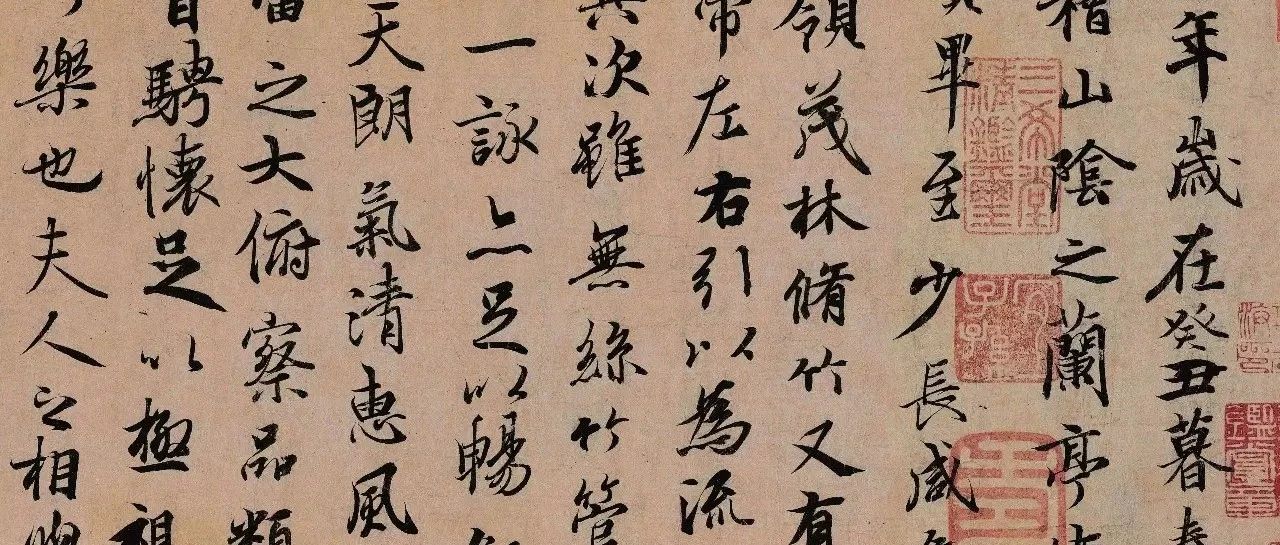 年歲在癸丑暮春
稽山陰之蘭亭
畢至少長咸
領茂林脩竹又有
帶左右引以為流
其次雖無絲竹管
一詠亦足以暢
天朗氣清惠風
宙之大俯察品類
目騁懷足以極視
樂也夫人之相與
三希堂精鑑璽
宜子孫